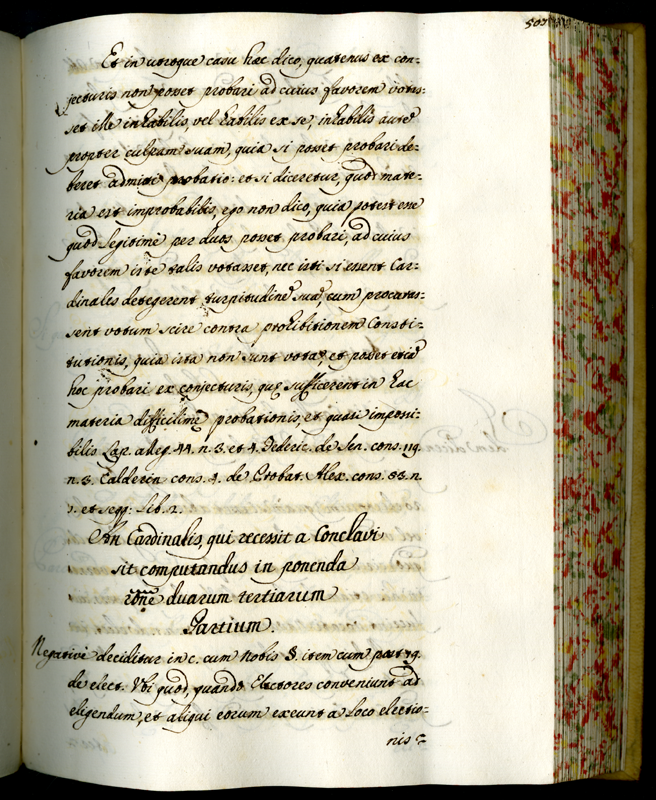 507
Et in utroque casu hæc dico, quatenus ex con=
jecturis non posset probari ad cuius favorem votas=
set ille inhabilis, vel habilis ex se, inhabilis autē
propter culpam suam, quia si posset probari de=
beret admitti probatio: et si diceretur, quod mate=
ria est improbabilis, ego non dico, quia potest esse
quod legitime per duos posset probari, ad cuius
favorem iste talis votasset, nec isti si essent Car=
dinales detegerent turpitudinē suā, cum procuras=
sent votum scire contra prohibitionem Consti=
tutionis, quia ista non sunt vota, et posset etiā
hoc probari ex conjecturis, quę sufficerent in hac
materia difficilimę probationis, et quasi impossi=
bilis Lap. alleg. 44. n. 3. et 4. Federic. de Sen. cons. 119.
n. 3. Calderin cons. 4. de Probat. Alex. cons. 83. n.
et seqq: lib. 2.
An Cardinalis, qui recessit a Conclavi
sit computandus in ponenda
rōñe duarum tertiarum
Partium.
Negative deciditur in c. cum nobis §. item cum post 79.
de elect. Ubi quod, quando Electores conveniunt ad
eligendum, et aliqui eorum exeunt a loco electio=
nis